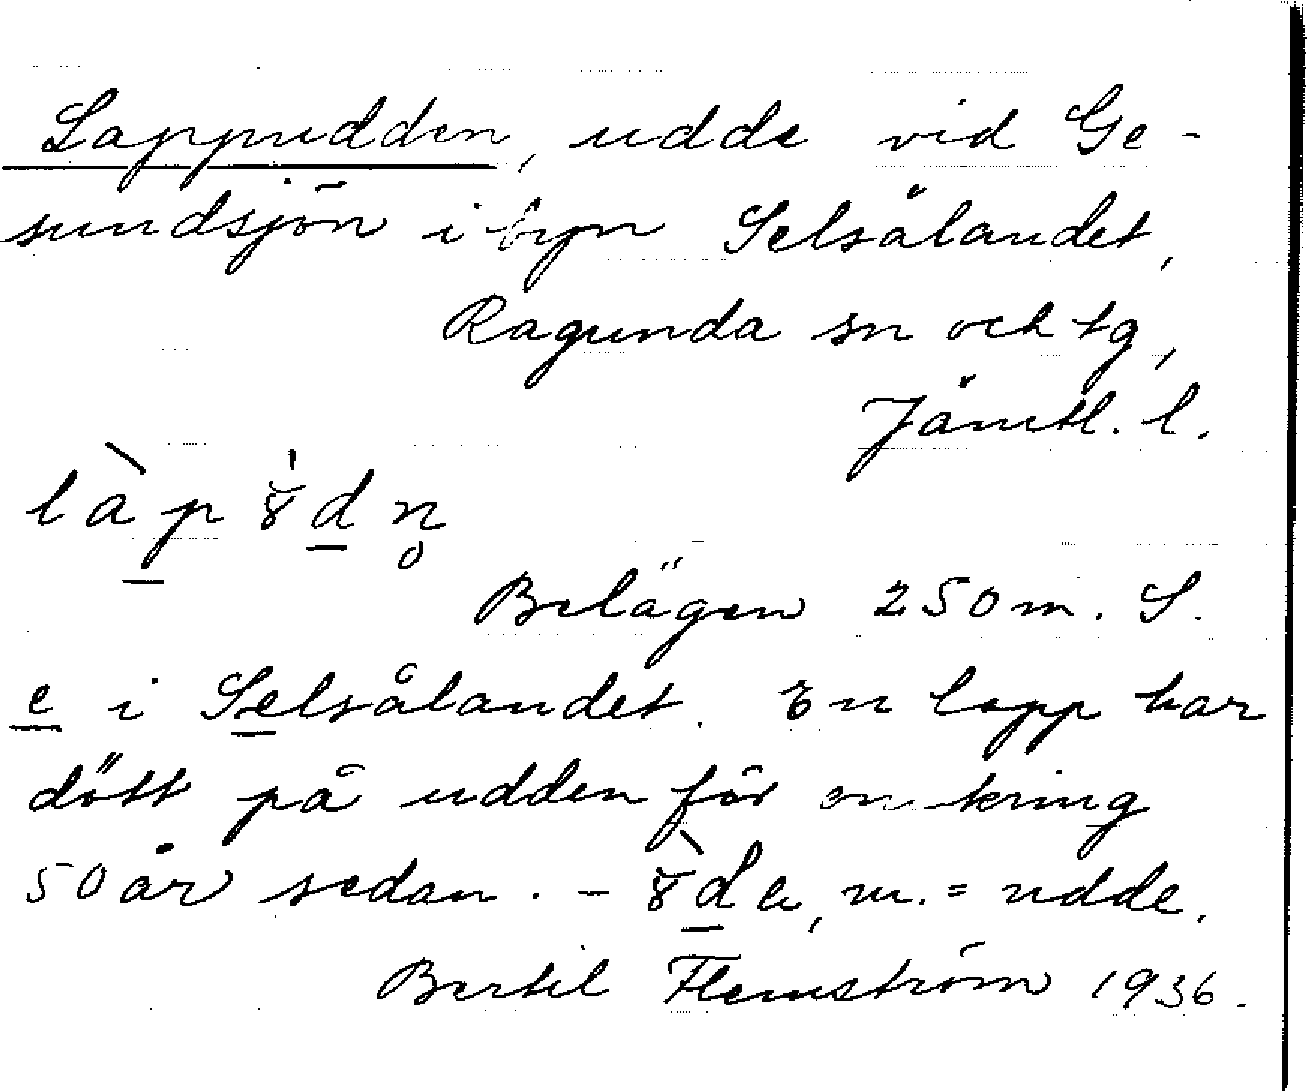 Lappudden, udde vid Ge-
sundsjön i byn Selsålandet,
Ragunda sn och tg,
Jämtl. l.
làp̲ 8̆́d̲n̥
Belägen 250 m. S.
e̲ i Se̲lsålandet. En lapp har
dött på udden för omkring
50 år sedan. – 8̆̀d̲e, m. = udde.
Bertil Flemström 1936.